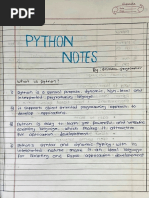 PYTHON
NOTES
What is Python?
Python is a general purpose, dynamic, high-level and
interpreted programming language.
It supports object oriented programming approach to
develop applications.
Python is easy to learn yet powerful and versatile
scripting language, which makes it attractive
for application development.
Python's syntax and dynamic typing with its
interpreted nature make it an ideal language
for scripting and rapid application development